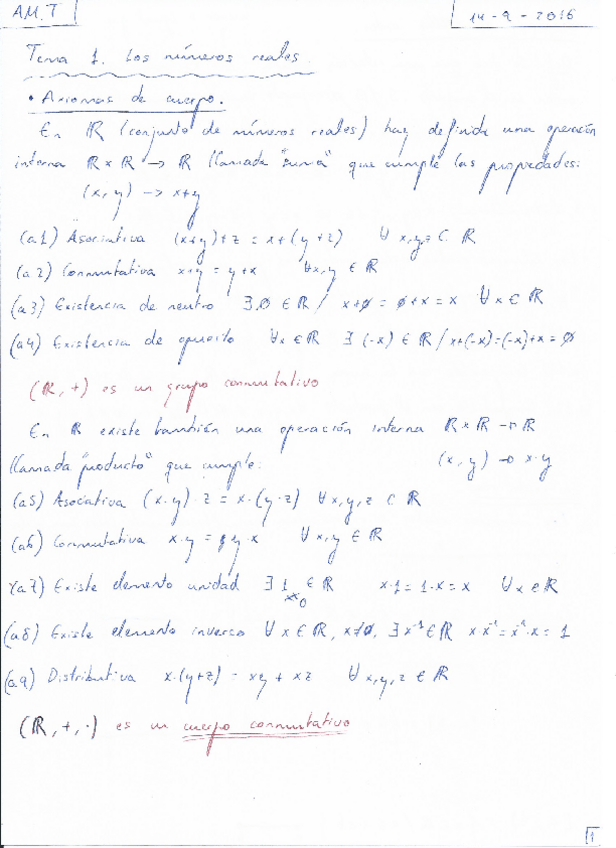 AM.T
14-9-2016
Tema 1. Los números reales.
• Axiomas de cuerpo.
En ℝ (conjunto de números reales) hay definida una operación
interna ℝ×ℝ → ℝ llamada "suma" que cumple las propiedades:
(x, y) → x+y
(a1) Asociativa (x+y)+z = x+(y+z) ∀ x,y,z ∈ ℝ
(a2) Conmutativa x+y = y+x ∀x,y ∈ ℝ
(a3) Existencia de neutro ∃ 0 ∈ ℝ / x+0 = 0+x = x ∀x ∈ ℝ
(a4) Existencia de opuesto ∀x ∈ ℝ ∃ (-x) ∈ ℝ / x+(-x)=(-x)+x = 0
(ℝ, +) es un grupo conmutativo
En ℝ existe también una operación interna ℝ×ℝ → ℝ
llamada "producto" que cumple: (x, y) → x·y
(a5) Asociativa (x·y)·z = x·(y·z) ∀x,y,z ∈ ℝ
(a6) Conmutativa x·y = y·x ∀x,y ∈ ℝ
(a7) Existe elemento unidad ∃ 1 ∈ ℝ x·1 = 1·x = x ∀x ∈ ℝ
(a8) Existe elemento inverso ∀x ∈ ℝ, x≠0, ∃ x⁻¹ ∈ ℝ x·x⁻¹ = x⁻¹·x = 1
(a9) Distributiva x·(y+z) = xy + xz ∀x,y,z ∈ ℝ
(ℝ, +, ·) es un cuerpo conmutativo
1